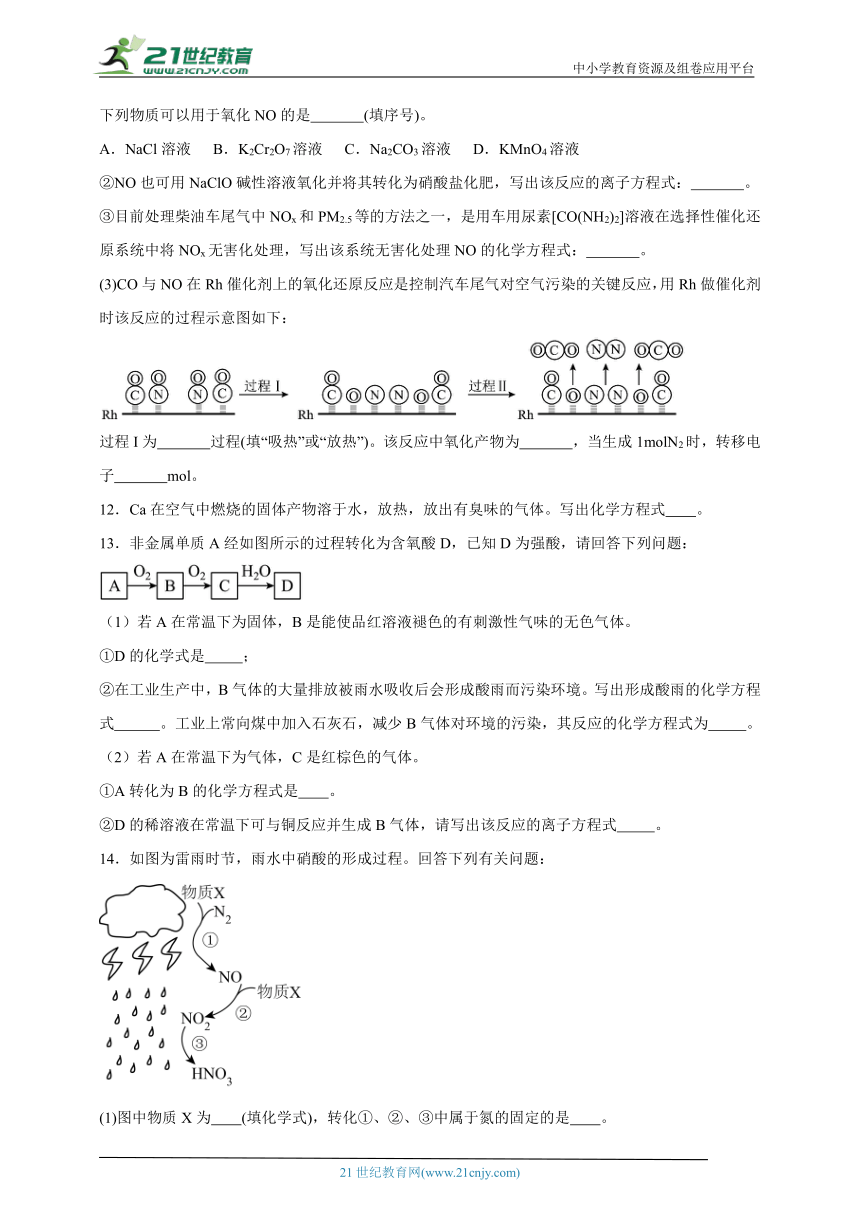 21世纪教育
WWW.21CNJY.COM
中小学教育资源及组卷应用平台
下列物质可以用于氧化 NO 的是_______(填序号)。
A．NaCl 溶液 B．K₂Cr₂O₇ 溶液 C．Na₂CO₃ 溶液 D．KMnO₄ 溶液
②NO 也可用 NaClO 碱性溶液氧化并将其转化为硝酸盐化肥，写出该反应的离子方程式：_______。
③目前处理柴油车尾气中 NOₓ 和 PM₂.₅ 等的方法之一，是用车用尿素[CO(NH₂)₂]溶液在选择性催化还
原系统中将 NOₓ 无害化处理，写出该系统无害化处理 NO 的化学方程式：_______。
(3)CO 与 NO 在 Rh 催化剂上的氧化还原反应是控制汽车尾气对空气污染的关键反应，用 Rh 做催化剂
时该反应的过程示意图如下：
O C O N N O C O
O O O O 过程Ⅰ O O 过程Ⅱ O O
C N N C C O N N O C C O N N O C
Rh Rh Rh
过程 I 为_______过程(填“吸热”或“放热”)。该反应中氧化产物为_______，当生成 1molN₂ 时，转移电
子_______mol。
12．Ca 在空气中燃烧的固体产物溶于水，放热，放出有臭味的气体。写出化学方程式____。
13．非金属单质 A 经如图所示的过程转化为含氧酸 D，已知 D 为强酸，请回答下列问题：
A O₂ B O₂ C H₂O D
（1）若 A 在常温下为固体，B 是能使品红溶液褪色的有刺激性气味的无色气体。
①D 的化学式是_____；
②在工业生产中，B 气体的大量排放被雨水吸收后会形成酸雨而污染环境。写出形成酸雨的化学方程
式______。工业上常向煤中加入石灰石，减少 B 气体对环境的污染，其反应的化学方程式为_____。
（2）若 A 在常温下为气体，C 是红棕色的气体。
①A 转化为 B 的化学方程式是____。
②D 的稀溶液在常温下可与铜反应并生成 B 气体，请写出该反应的离子方程式_____。
14．如图为雷雨时节，雨水中硝酸的形成过程。回答下列有关问题：
物质X
N₂
①
NO
物质X
②
NO₂
③
HNO₃
(1)图中物质 X 为____(填化学式)，转化①、②、③中属于氮的固定的是____。
21 世纪教育网(www.21cnjy.com)